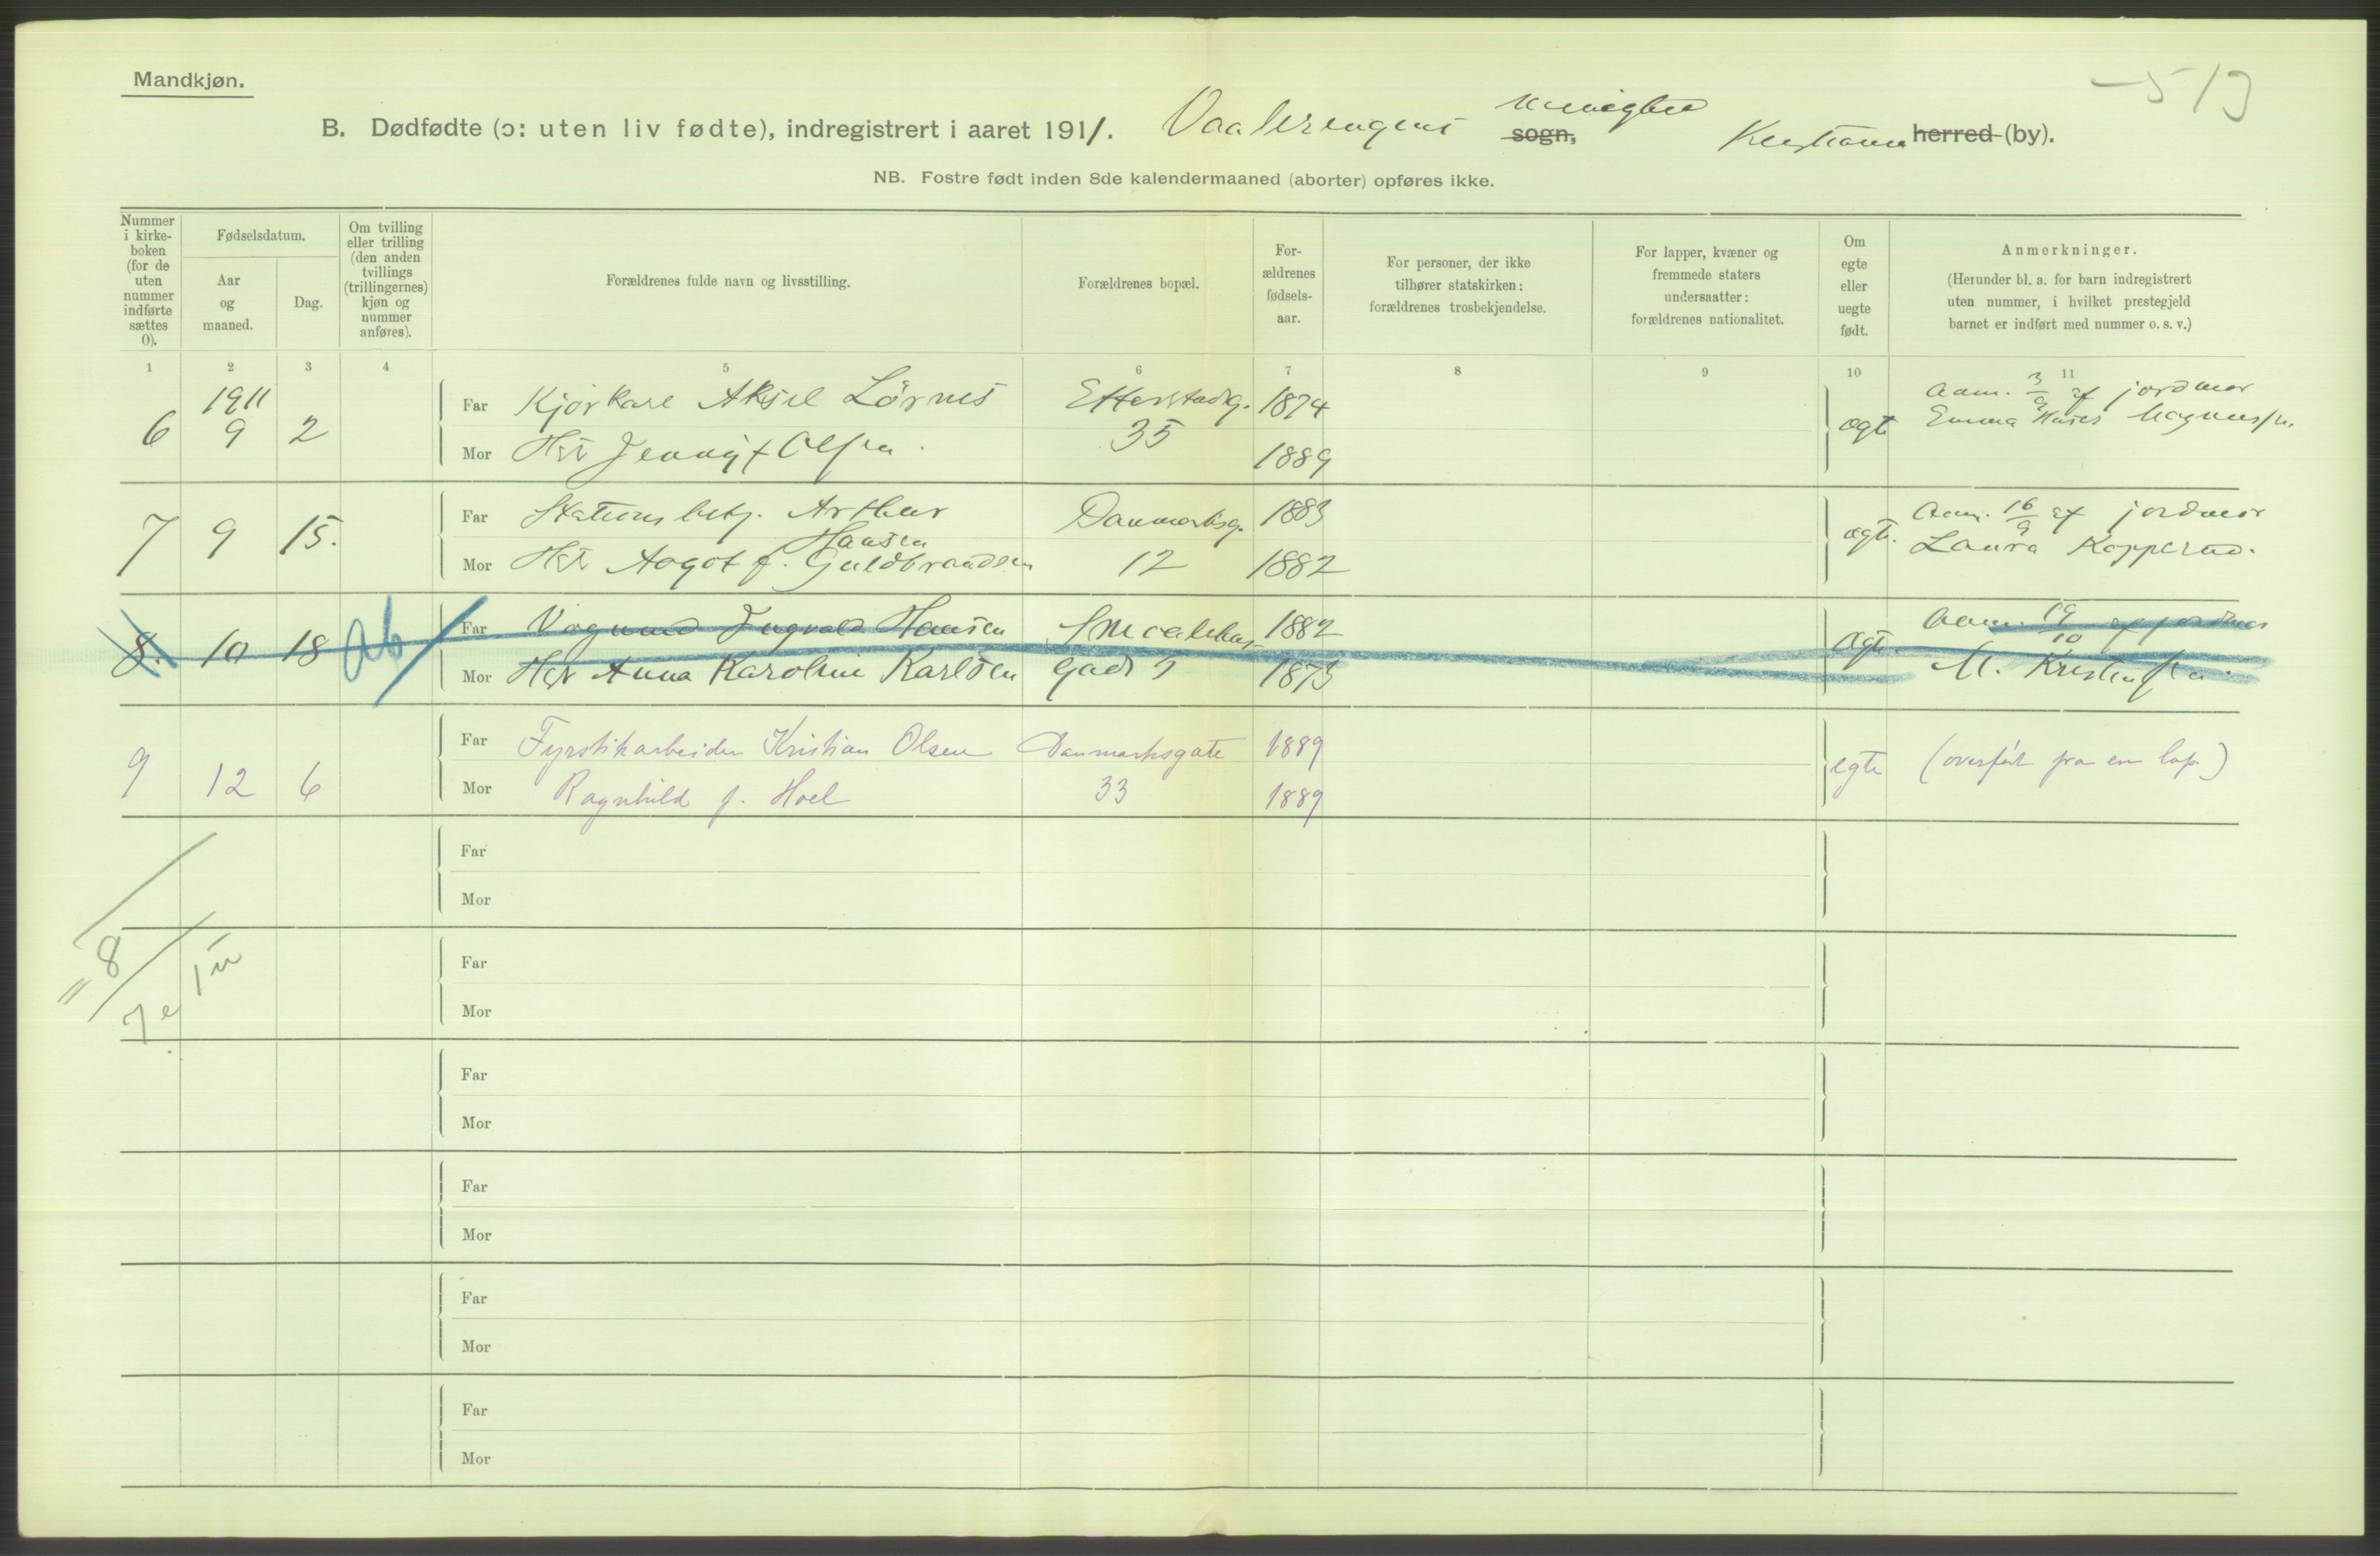 Mandkjøn.
513
B. Dødfødte (ɔ: uten liv fødte), indregistrert i aaret 1911. Vaalerengens menighet sogn, Kristiania herred (by).
NB. Fostre født inden 8de kalendermaaned (aborter) opføres ikke.
Nummer i kirke-boken (for de uten nummer indførte sættes 0).
Fødselsdatum.
Aar og maaned.
Dag.
Om tvilling eller trilling (den anden tvillings (trillingernes) kjøn og nummer anføres).
Forældrenes fulde navn og livsstilling.
Forældrenes bopæl.
For-ældrenes fødsels-aar.
For personer, der ikke tilhører statskirken: forældrenes trosbekjendelse.
For lapper, kvæner og fremmede staters undersaatter: forældrenes nationalitet.
Om egte eller uegte født.
Anmerkninger.
(Herunder bl. a. for barn indregistrert uten nummer, i hvilket prestegjeld barnet er indført med nummer o. s. v.)
1 2 3 4 5 6 7 8 9 10 11
1911
6 9 2
Far Kjørkarl Aksel Lørnes Etterstadg. 1874
Mor Hst Jenny f Olsen. 35 1889
ægte
Anm. 3/9 af jordmor
Emma Magnussen.
7 9 15.
Far Stationsbetj. Arthur Hansen Danmarksg. 1883
Mor Hst Aagot f. Guldbrandsen 12 1882
ægt.
Anm. 16/9 af jordmor
Laura Kopperud.
8. 10 18 ab
Far Vognmd Ingvald Hansen Smaalens 1882
Mor Hst Anna Karoline Karlsen gade 5 1873
ægt.
Anm. 19/10 af jordmor
M. Kristensen.
9 12 6
Far Fyrstikarbeider Kristian Olsen Danmarksgate 1889
Mor Ragnhild f. Hoel 33 1889
egte (overført fra en lap.)
Far
Mor
= 8
7 e 1 u
Far
Mor
Far
Mor
Far
Mor
Far
Mor
Far
Mor